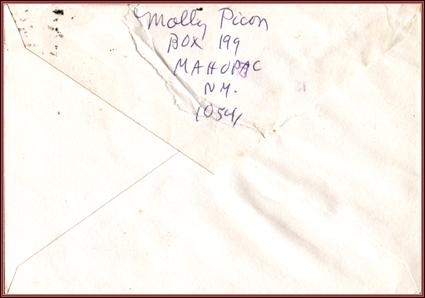 Molly Picon
BOX 199
MAHOPAC
N.Y.
10541